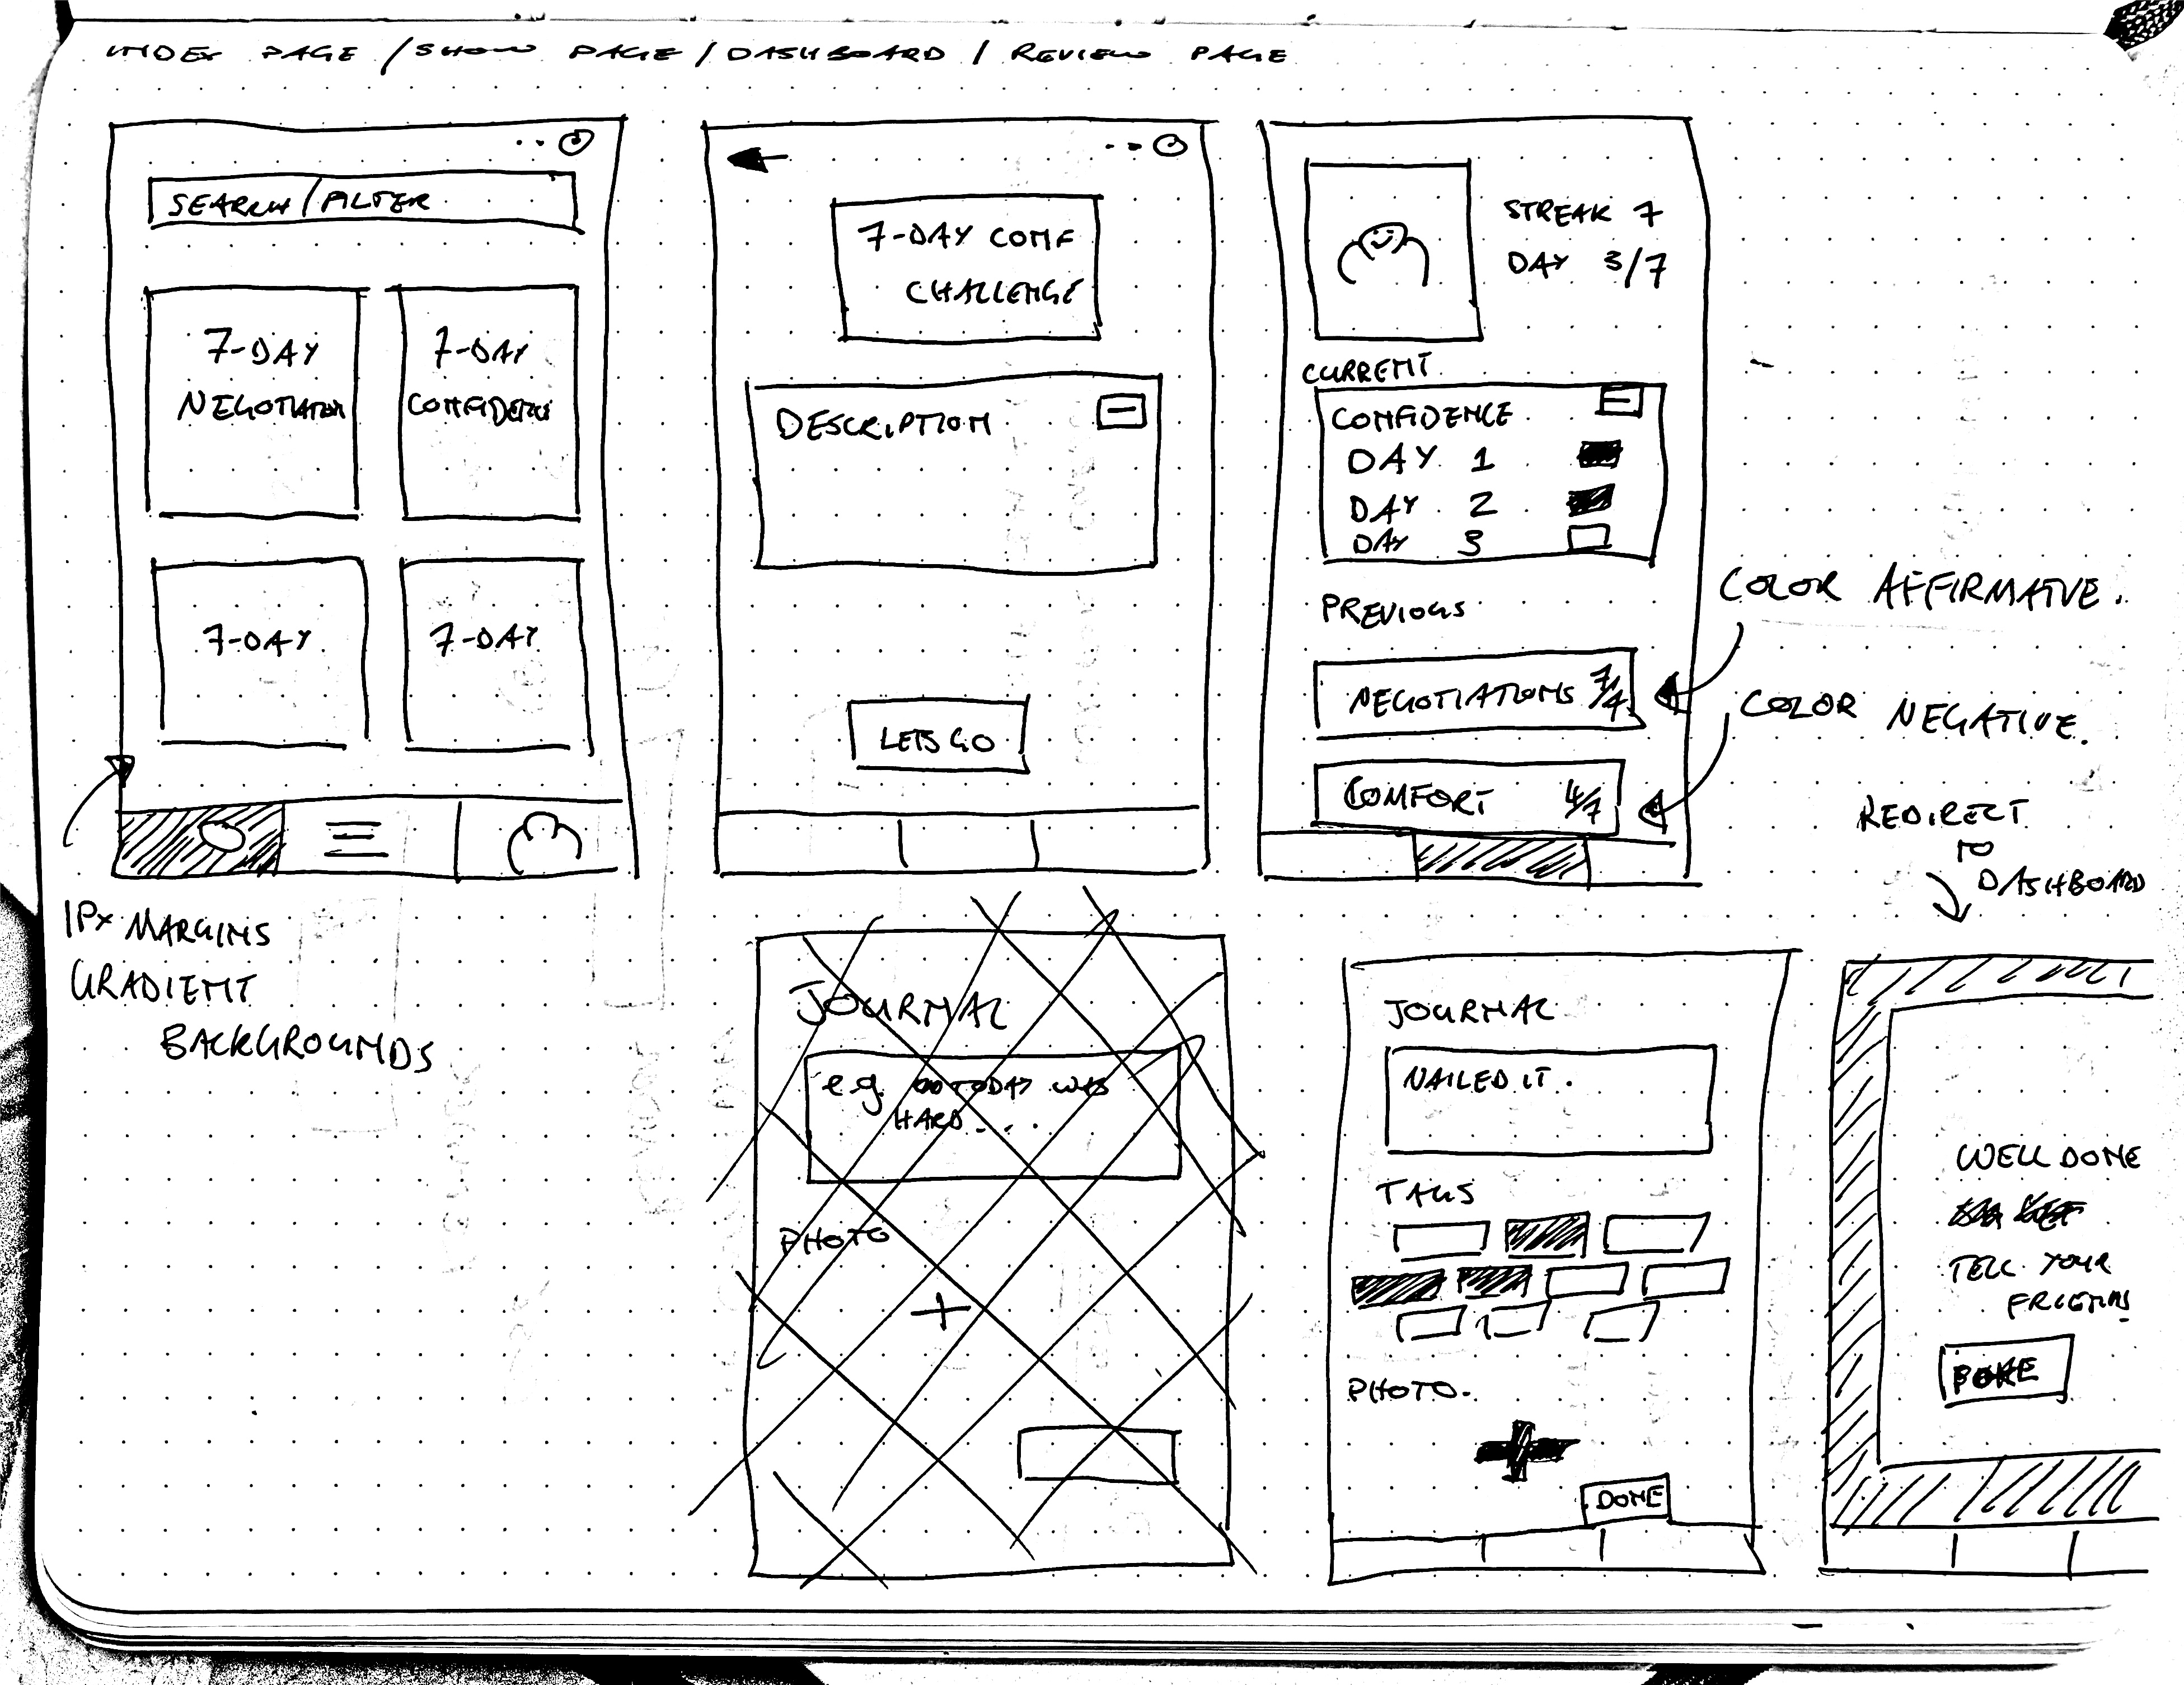 INDEX PAGE / SHOW PAGE / DASHBOARD / REVIEW PAGE
SEARCH / FILTER
7-DAY
NEGOTIATION
7-DAY
CONFIDENCE
7-DAY
7-DAY
1PX MARGINS
GRADIENT
BACKGROUNDS
7-DAY CONF
CHALLENGE
DESCRIPTION
LETS GO
STREAK 7
DAY 3/7
CURRENT
CONFIDENCE
DAY 1
DAY 2
DAY 3
PREVIOUS
NEGOTIATIONS 7/7
COMFORT 4/7
COLOR AFFIRMATIVE.
COLOR NEGATIVE.
REDIRECT
TO
DASHBOARD
JOURNAL
e.g. TODAY WAS
HARD...
PHOTO
JOURNAL
NAILED IT.
TAGS
PHOTO.
DONE
WELL DONE
TELL YOUR
FRIENDS
POKE